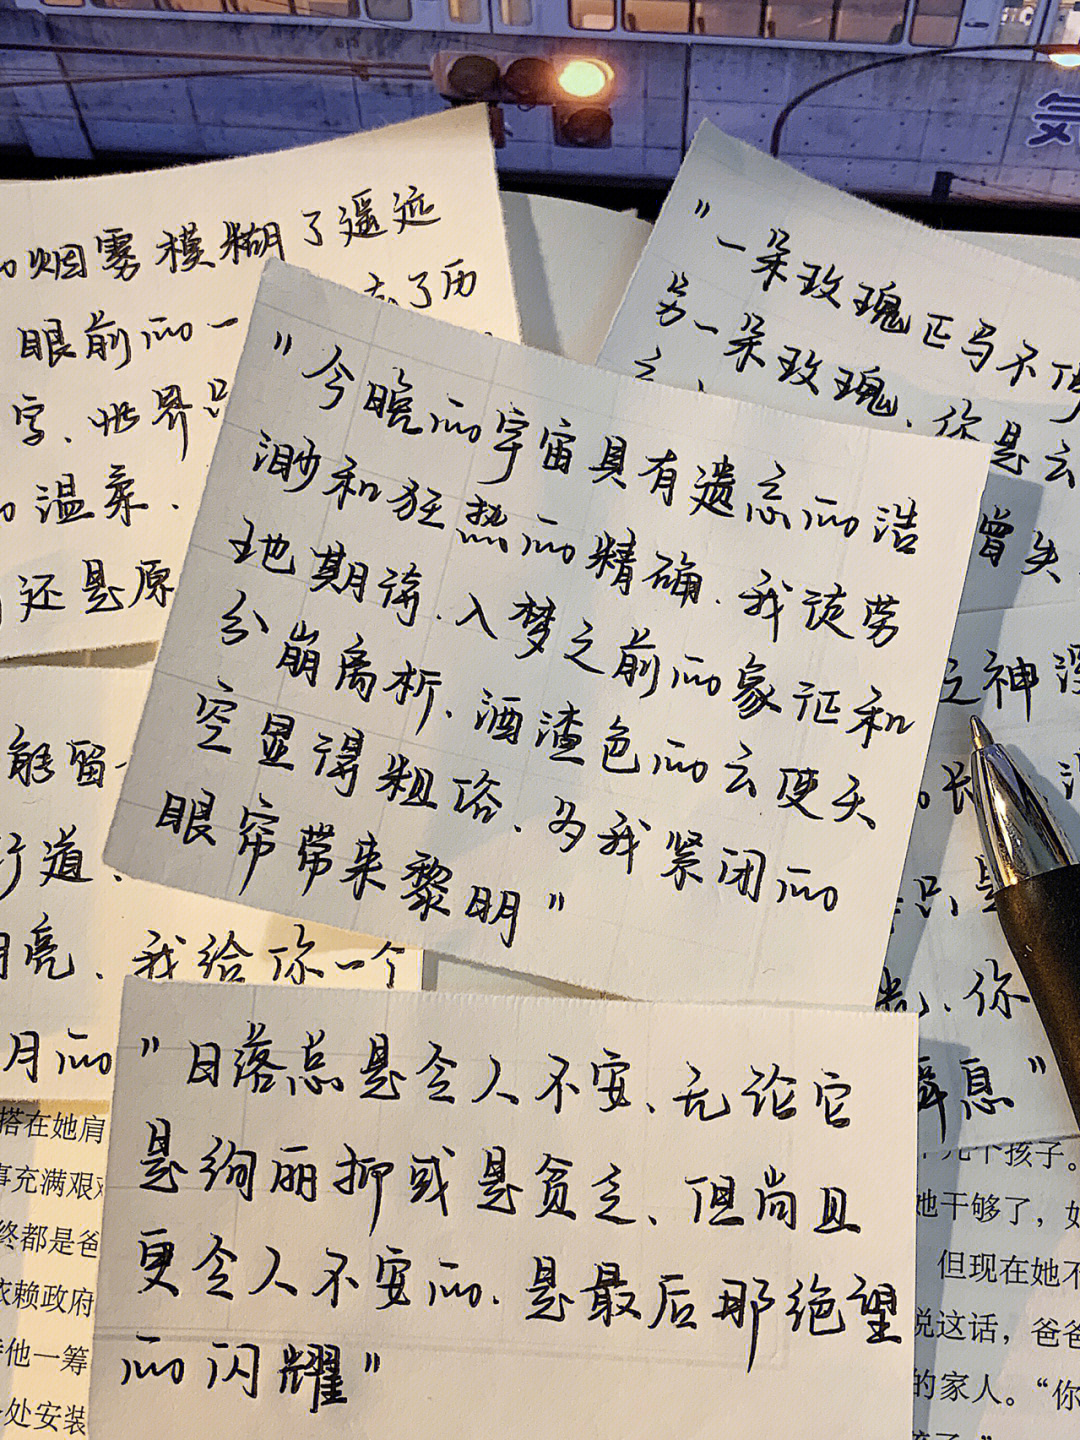 気
烟雾模糊了遥远
眼前的一
了历
字、世界只
温柔、
还是原
"一朵玫瑰正马不停
另一朵玫瑰、你是云
曾失
之神
只是
、你
瞬息"
"今晚的宇宙具有遗忘的浩
渺和狂热的精确、我徒劳
地期待、入梦之前的象征和
分崩离析、酒渣色的云使天
空显得粗俗、为我紧闭的
眼帘带来黎明"
能留
行道、
月亮、我给你一个
月的
"日落总是令人不安、无论它
是绚丽抑或是贫乏、但尚且
更令人不安的、是最后那绝望
的闪耀"
搭在她肩
事充满艰
终都是爸
依赖政府
他一筹
处安装
几个孩子。
她干够了，如
但现在她不
说这话，爸爸
的家人。“你